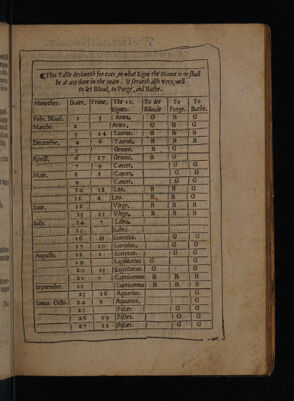 This Table declareth for euer, in what Signe the Moone is or shall
be at any time in the yeare. It serueth also very well
to let Bloud, to Purge, and Bathe.
Monethes. Dayes. Prime. The 12. Signes. To let Bloude To Purge. To Bathe.
Febr. Noue. 1 5 Aries. G B G
Marche. 2 Aries. G B G
3 14 Taurus. B B B
December. 4 6 Taurus. B B B
5 Gemini. B G
Aprill. 6 17 Gemini. B G
7 9 Cancer. G G
Maie. 8 1 Cancer. G G
9 Cancer. G G
10 12 Leo. B B G
11 4 Leo. B B G
June. 12 Virgo. B B B
13 15 Virgo. B B B
July. 14 7 Libra.
15 Libra.
16 18 Scorpius. G G
17 10 Scorpius. G G
Auguste. 18 2 Scorpius. G G
19 Sagittarius G G
20 13 Sagittarius. G G
21 5 Capricornus B B B
September. 22 Capricornus B B B
23 16 Aquarius. G
Ianua. Octo. 24 8 Aquarius. G
25 Pisces G G
26 19 Pisces. G G
27 11 Pisces. G G